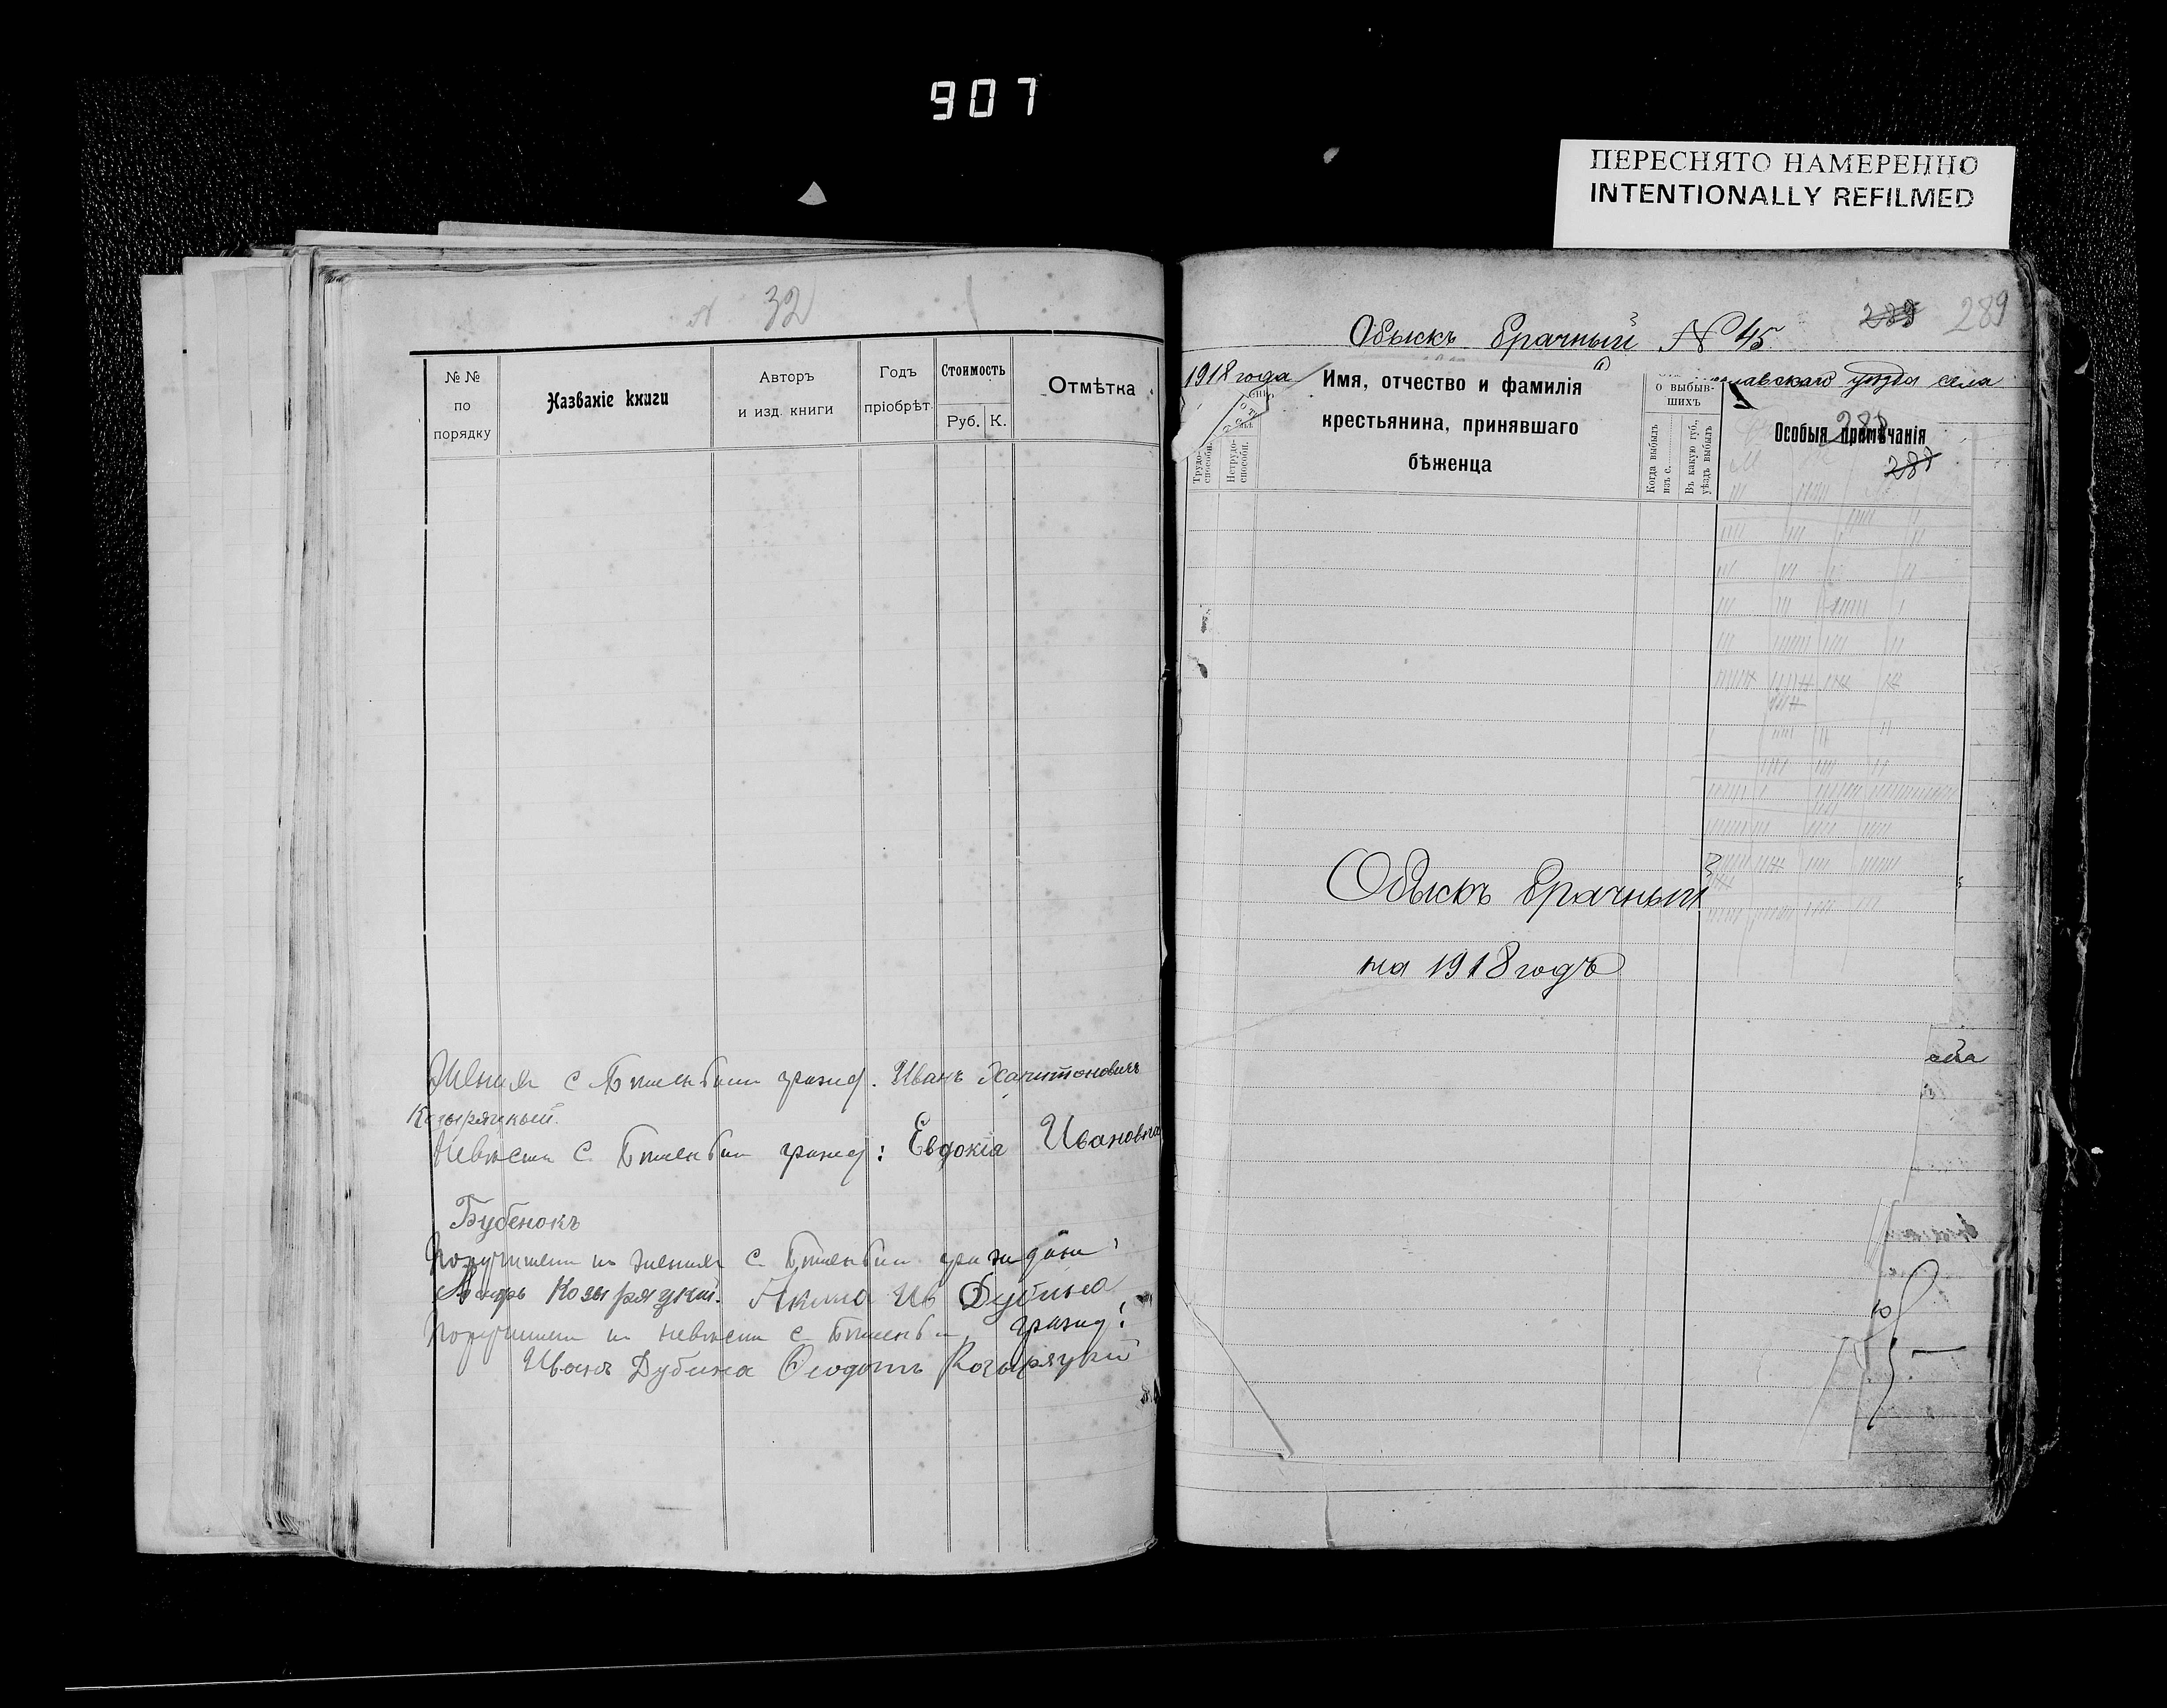 907
ПЕРЕСНЯТО НАМЕРЕННО
INTENTIONALLY REFILMED
N 32
№ № по порядку
Названіе книги
Авторъ и изд. книги
Годъ пріобрѣт.
Стоимость
Руб. К.
Отмѣтка
Жених с. гражд. Иванъ Харитоновичъ
Козыряцкый.
Невѣста с. гражд: Евдокія Ивановна
Бубенокъ
Поручители по жених с. граждани:
Козыряцкий. Дубина
Поручители по невѣсти с. гражд:
Иванъ Дубина Ѳеодотъ Козыряцкій
Обыскъ брачный N 45
239 289
1918 года
уѣзда села
Трудо-способн.
Нетрудо-способн.
Имя, отчество и фамилія
крестьянина, принявшаго
бѣженца
о выбыв-
шихъ
Когда выбылъ изъ с.
Въ какую губ., уѣздъ выбылъ
Особыя примѣчанія
288
287
Обыскъ брачный
на 1918 годъ